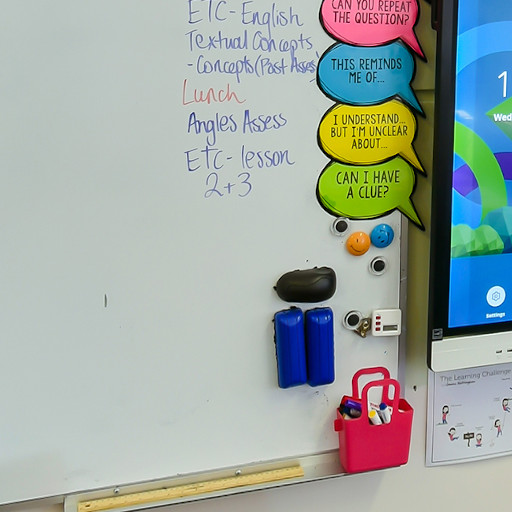 ETC - English
Textual Concepts
- Concepts (Past Assess
Lunch
Angles Assess
ETC - lesson
2+3
CAN YOU REPEAT
THE QUESTION?
THIS REMINDS
ME OF...
I UNDERSTAND...
BUT I'M UNCLEAR
ABOUT...
CAN I HAVE
A CLUE?
1
Wed
Settings
The Learning Challenge